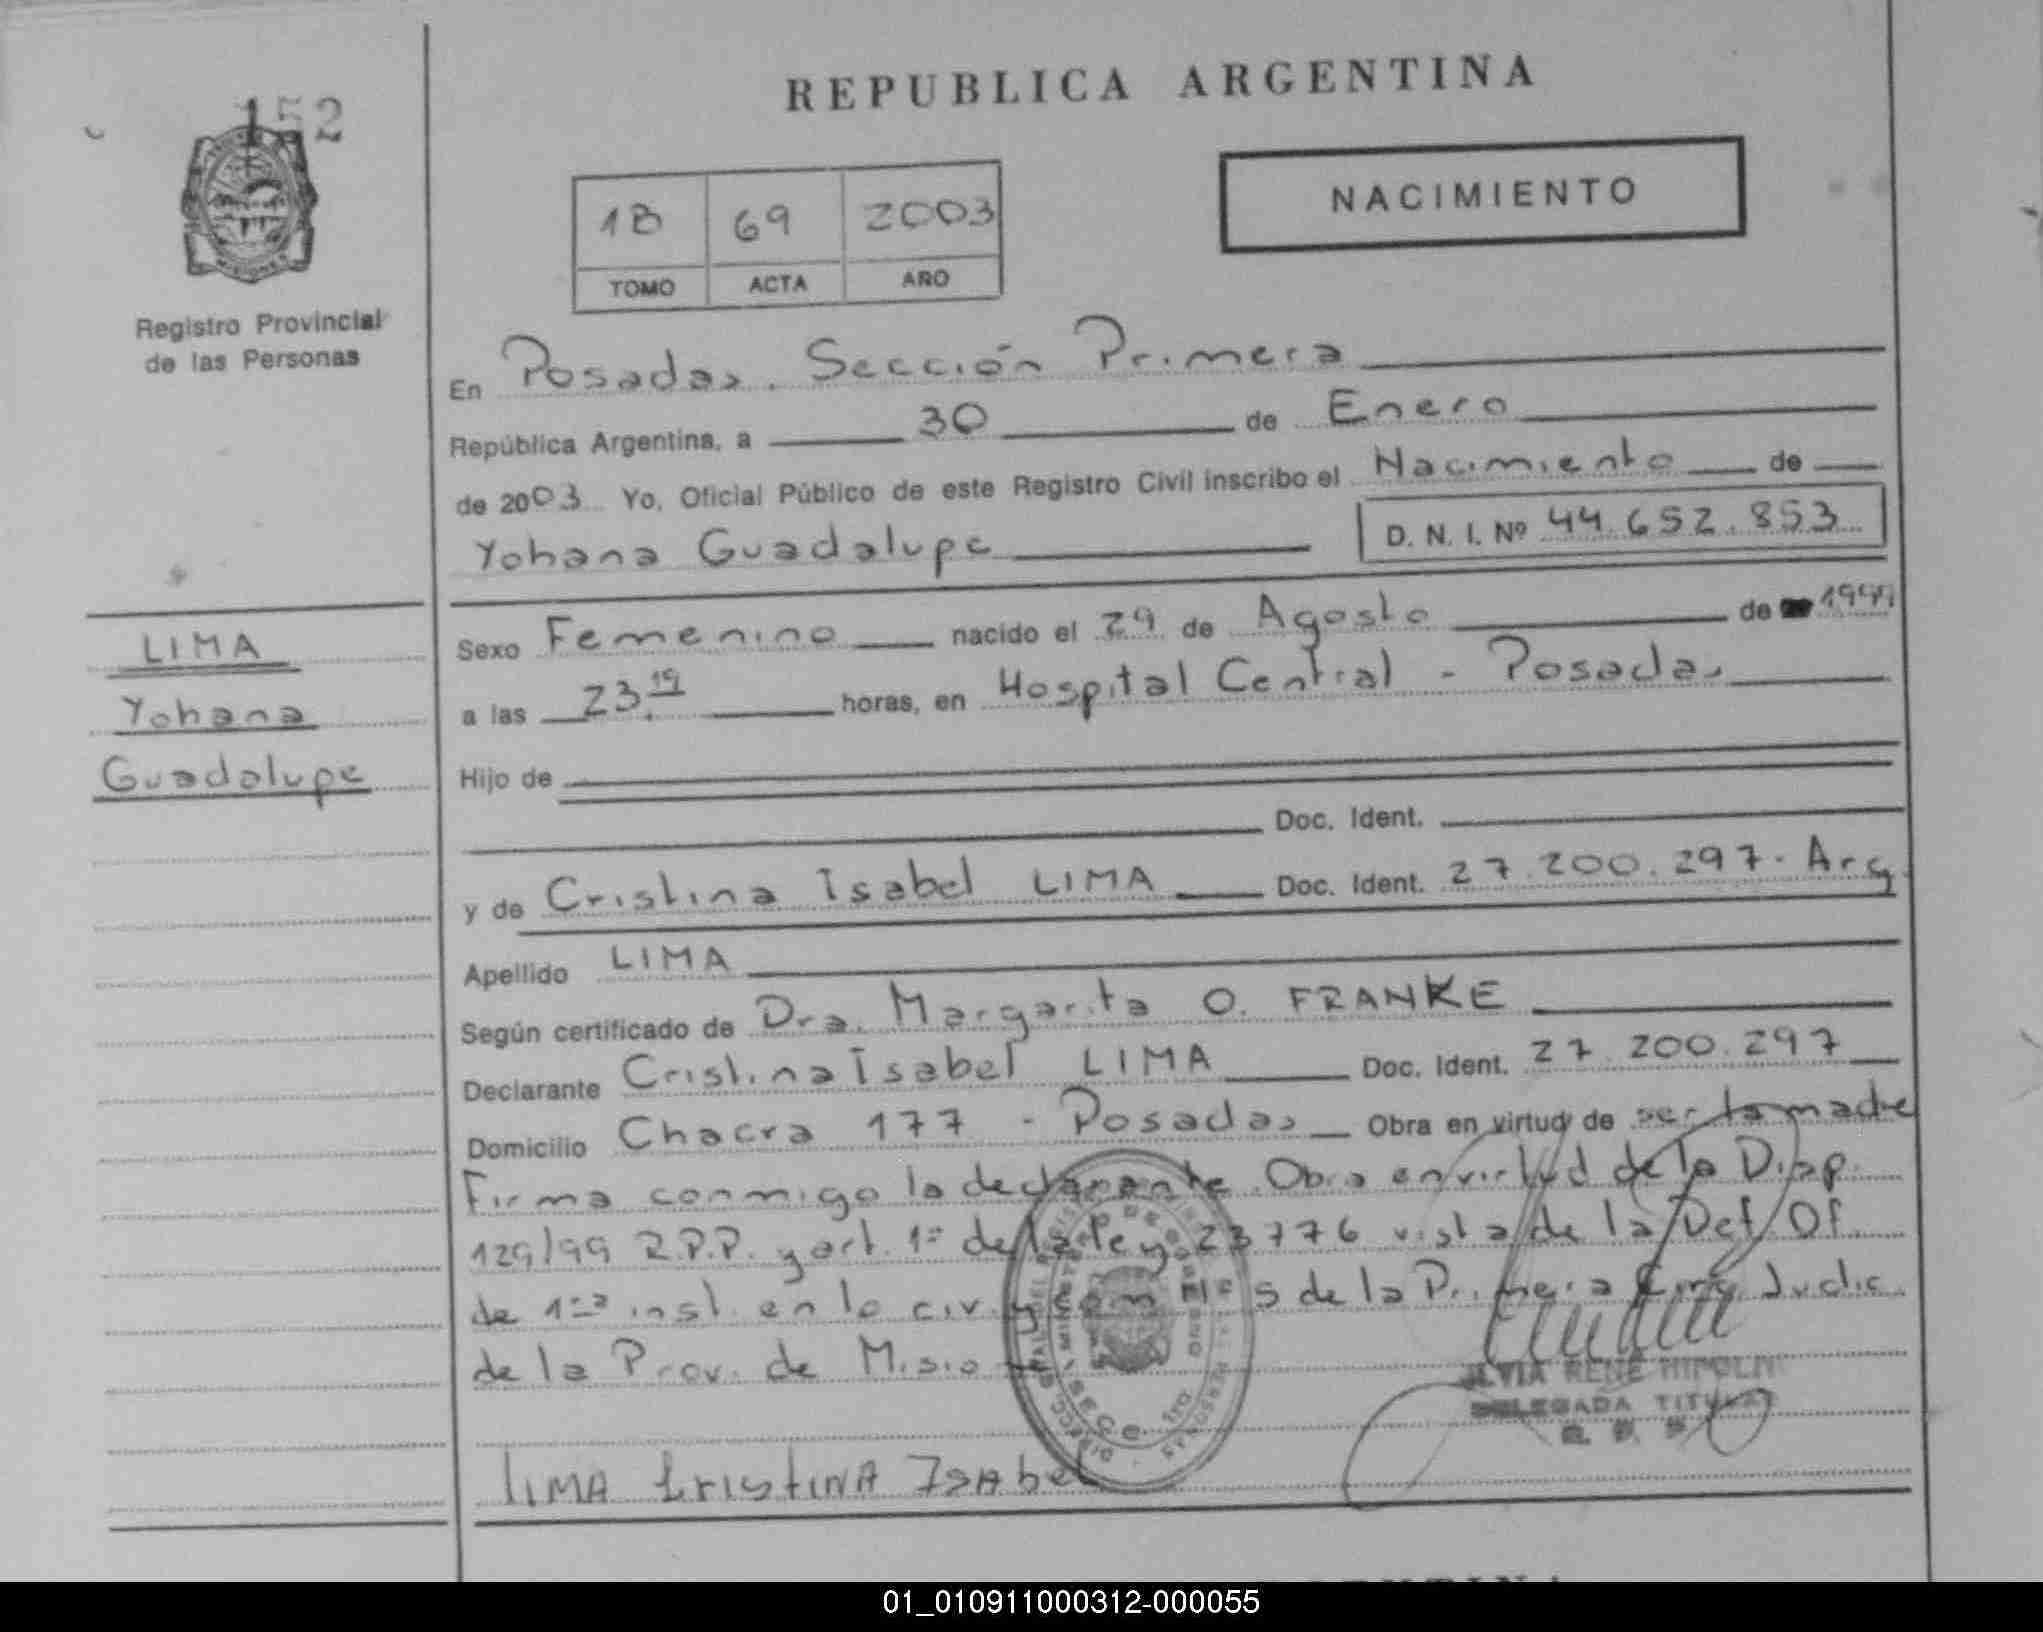 REPUBLICA ARGENTINA
152
MISIONES
Registro Provincial
de las Personas
NACIMIENTO
1B 69 2003
TOMO ACTA AÑO
En Posadas. Sección Primera
República Argentina, a 30 de Enero
de 2003 Yo, Oficial Público de este Registro Civil inscribo el Nacimiento de
Yohana Guadalupe D. N. I. Nº 44.652.853
LIMA
Yohana
Guadalupe
Sexo Femenino nacido el 29 de Agosto de 1999
a las 23.19 horas, en Hospital Central - Posadas
Hijo de
Doc. Ident.
y de Cristina Isabel LIMA Doc. Ident. 27.200.297. Arg.
Apellido LIMA
Según certificado de Dra. Margarita O. FRANKE
Declarante Cristina Isabel LIMA Doc. Ident. 27.200.297
Domicilio Chacra 177 - Posadas Obra en virtud de ser la madre
Firma conmigo la declarante. Obra en virtud de la Disp.
129/99 R.P.P. y art. 1º de la ley 23776 vista de la Def. Of.
de 1ra inst. en lo civ. y com Nº 5 de la Primera Circ. Judic.
de la Prov. de Misio
LIMA CristINA ISAbel
DELEGADA TITULAR
R. P. P.
01_010911000312-000055